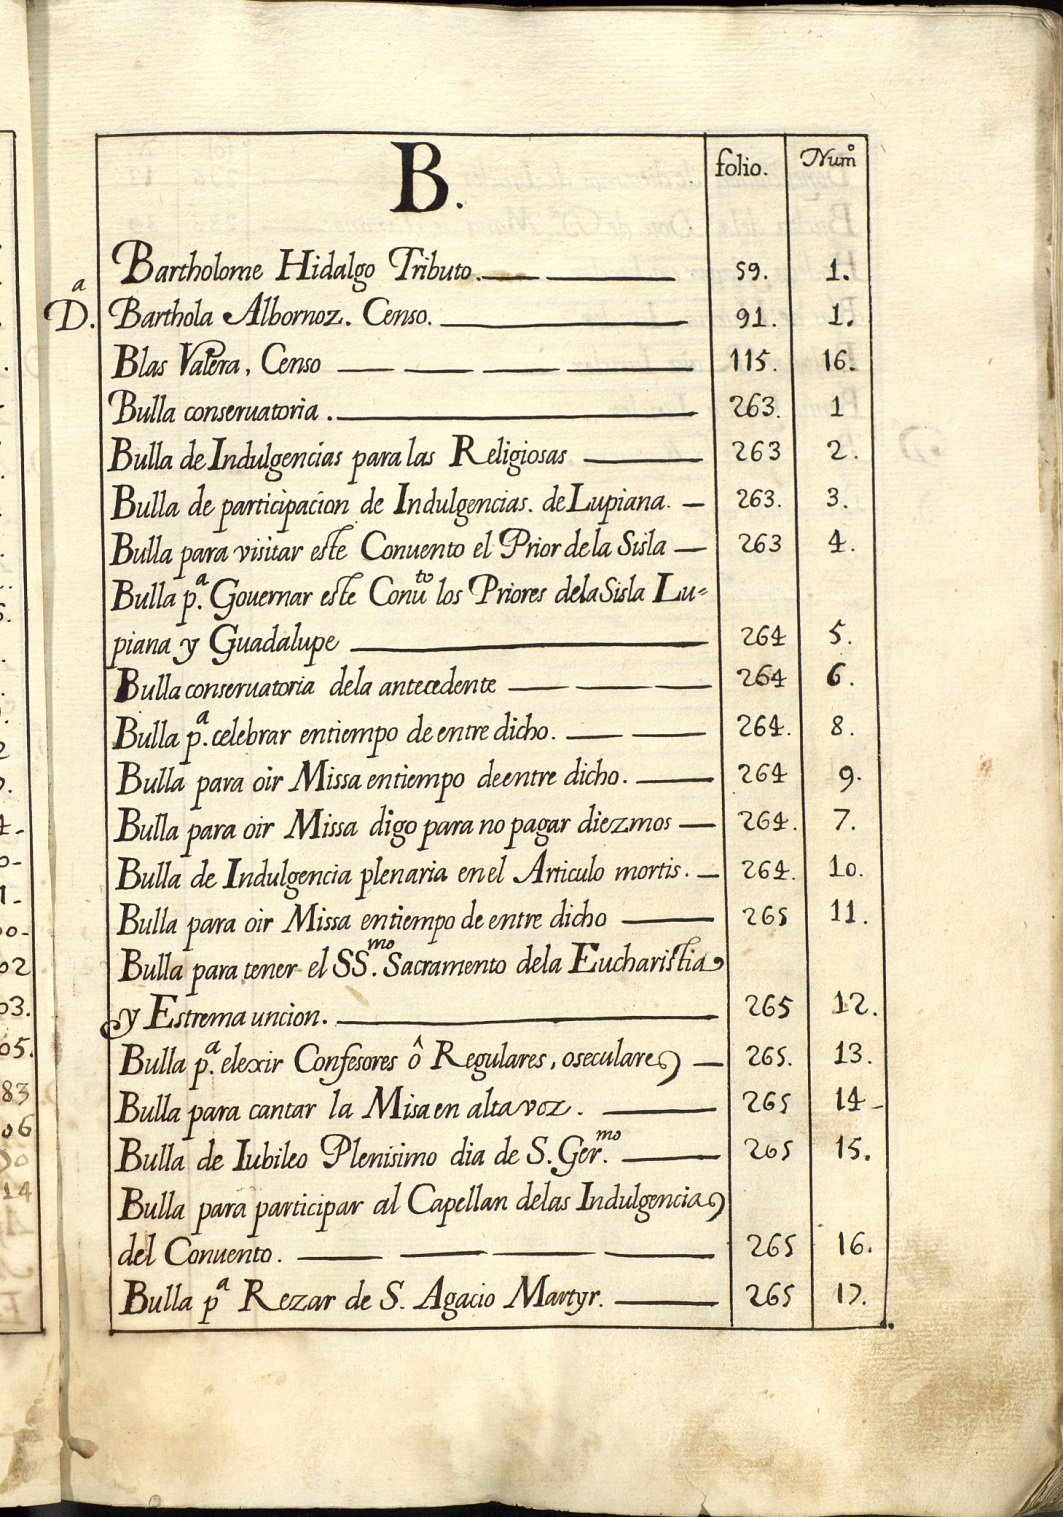 B. folio. Numº
Bartholome Hidalgo Tributo. 59. 1.
Dª. Barthola Albornoz. Censo. 91. 1.
Blas Valera, Censo 115. 16.
Bulla conseruatoria. 263. 1
Bulla de Indulgencias para las Religiosas 263 2.
Bulla de participacion de Indulgencias. de Lupiana. 263. 3.
Bulla para visitar este Conuento el Prior de la Sisla 263 4.
Bulla pª. Gouernar este Conuto los Priores dela Sisla Lu=
piana y Guadalupe 264 5.
Bulla conseruatoria dela antecedente 264 6.
Bulla pª. celebrar entiempo de entre dicho. 264. 8.
Bulla para oir Missa entiempo deentre dicho. 264 9.
Bulla para oir Missa digo para no pagar diezmos 264. 7.
Bulla de Indulgencia plenaria en el Articulo mortis. 264. 10.
Bulla para oir Missa entiempo de entre dicho 265 11.
Bulla para tener el SSmo. Sacramento dela Eucharistia
y Estrema uncion. 265 12.
Bulla pª. elexir Confesores ô Regulares, o seculares 265. 13.
Bulla para cantar la Misa en alta voz. 265 14
Bulla de Iubileo Plenisimo dia de S. Germo. 265 15.
Bulla para participar al Capellan delas Indulgencias
del Conuento. 265 16.
Bulla pª Rezar de S. Agacio Martyr. 265 17.
02
03.
05.
83
06
14